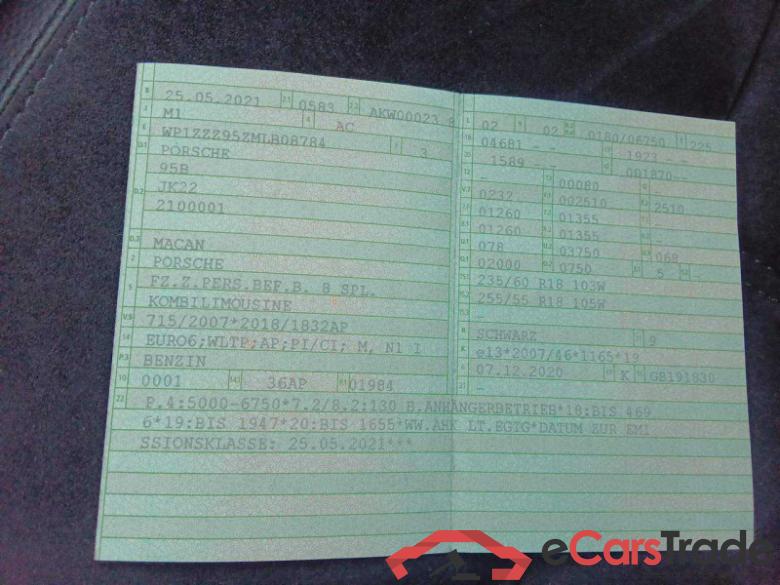 B 25.05.2021 2.1 0583 2.2 AKW00023 8
J M1 4 AC
E WP1ZZZ95ZMLB08784 3 3
D.1 PORSCHE
95B
D.2 JK22
2100001
D.3 MACAN
2 PORSCHE
5 FZ.Z.PERS.BEF.B. 8 SPL.
KOMBILIMOUSINE
V.9 715/2007*2018/1832AP
14 EURO6;WLTP;AP;PI/CI; M, N1 I
P.3 BENZIN
10 0001 14.1 36AP P.1 01984
L 02 9 02 P.2 P.4 0180/06750 T 225
18 04681 - - 19 1923 - -
20 1589 - - G 001870--
12 - 13 00080 Q -
V.7 0232 F.1 002510 F.2 2510
7.1 01260 7.2 01355 7.3 -
8.1 01260 8.2 01355 8.3 -
U.1 078 U.2 03750 U.3 068
O.1 02000 O.2 0750 S.1 5 S.2 -
15.1 235/60 R18 103W
15.2 255/55 R18 105W
15.3 -
R SCHWARZ 11 9
K e13*2007/46*1165*19
6 07.12.2020 17 K 16 GB191830
21 -
22 P.4:5000-6750*7.2/8.2:130 B.ANHÄNGERBETRIEB*18:BIS 469
6*19:BIS 1947*20:BIS 1655*WW.AHK LT.EGTG*DATUM ZUR EMI
SSIONSKLASSE: 25.05.2021***
eCarsTrade